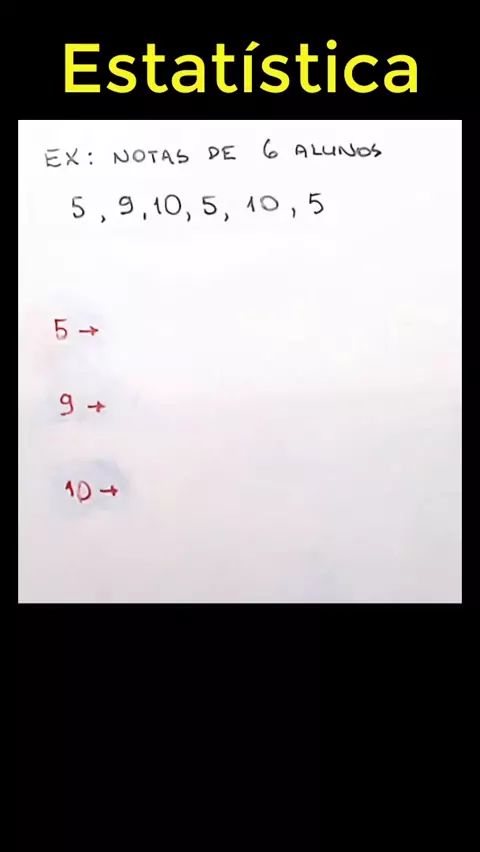 Estatística
EX: NOTAS DE 6 ALUNOS
5, 9, 10, 5, 10, 5
5 →
9 →
10 →